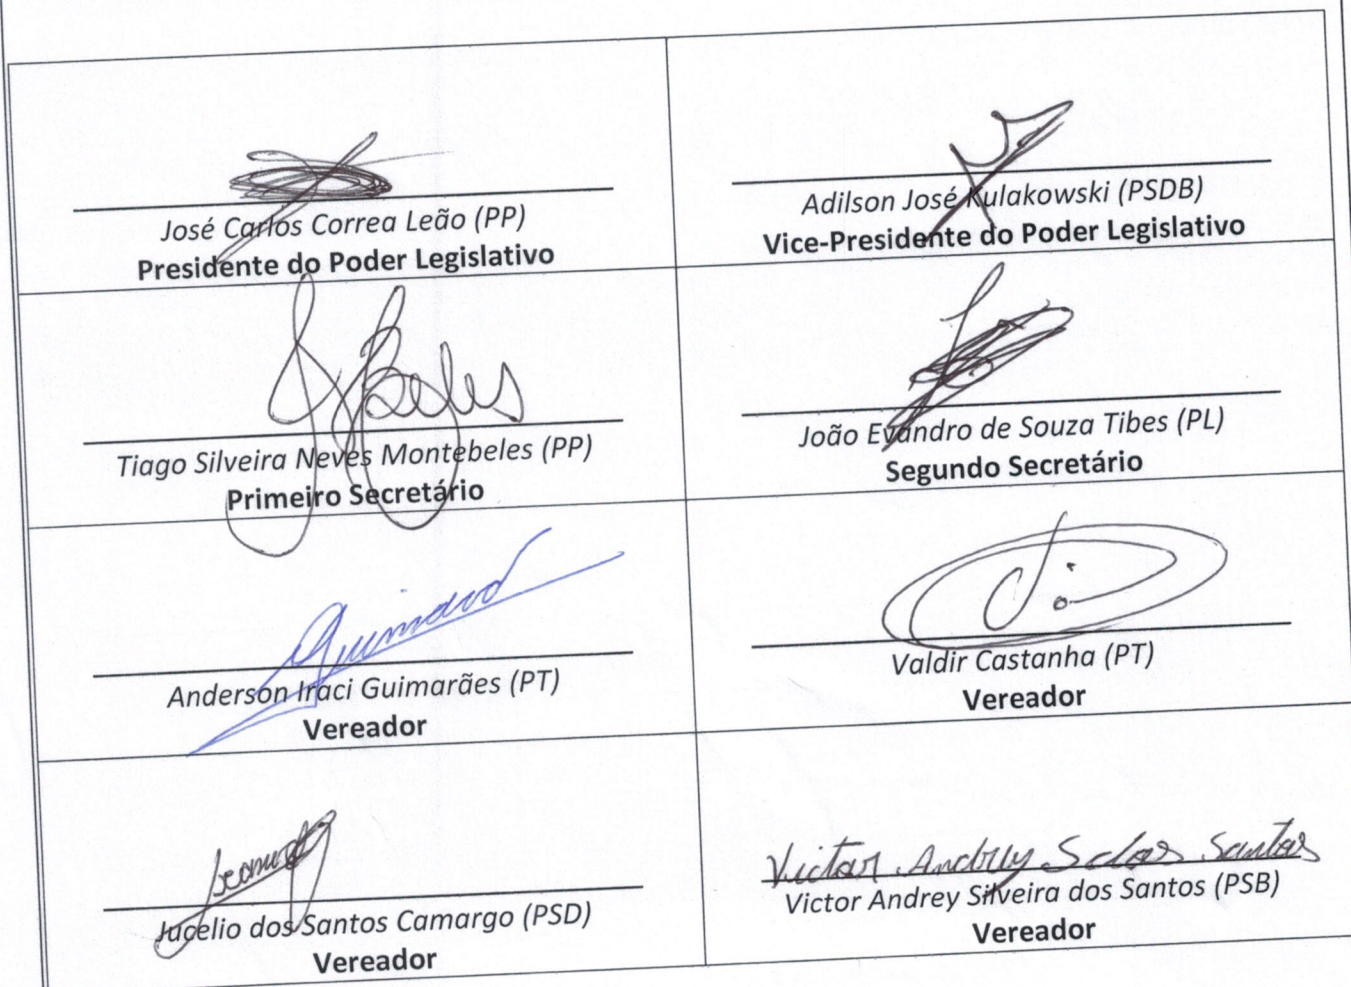 José Carlos Correa Leão (PP)
Presidente do Poder Legislativo
Adilson José Kulakowski (PSDB)
Vice-Presidente do Poder Legislativo
Tiago Silveira Neves Montebeles (PP)
Primeiro Secretário
João Evandro de Souza Tibes (PL)
Segundo Secretário
Anderson Iraci Guimarães (PT)
Vereador
Valdir Castanha (PT)
Vereador
Jucelio dos Santos Camargo (PSD)
Vereador
Victor Andrey S dos Santos
Victor Andrey Silveira dos Santos (PSB)
Vereador